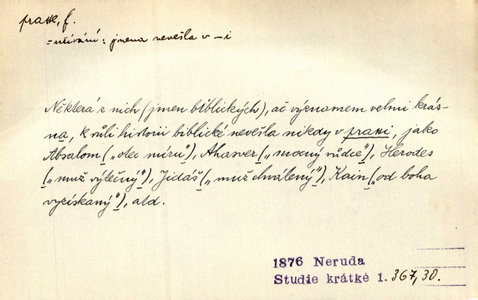 praxe, f.
= užívání: jmena nevešla v -i
Některá z nich (jmen biblických), ač významem velmi krás-
na, k vůli historii biblické nevešla nikdy v praxi, jako
Absalom („otec míru“), Ahasver („mocný vůdce“), Herodes
(„muž výtečný“), Jidáš („muž chválený“), Kain („od boha
vyzískaný“), atd.
1876 Neruda
Studie krátké 1. 367,30.